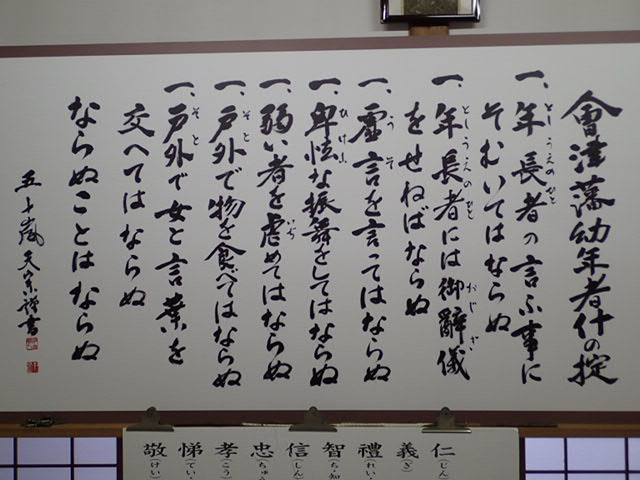 會津藩幼年者什の掟
一、年長者の言ふ事に
としうえのひと
そむいてはならぬ
一、年長者には御辭儀
としうえのひと おじぎ
をせねばならぬ
一、虚言を言ってはならぬ
うそ
一、卑怯な振舞をしてはならぬ
ひけふ
一、弱い者を虐めてはならぬ
いぢ
一、戸外で物を食べてはならぬ
そと
一、戸外で女と言葉を
そと
交へてはならぬ
ならぬことはならぬ
五十嵐
書
仁 (じん)
義 (ぎ)
禮 (れい)
智 (ち・知
信 (しん)
忠 (ちゅう
孝 (こう)
悌 (てい)
敬 (けい)